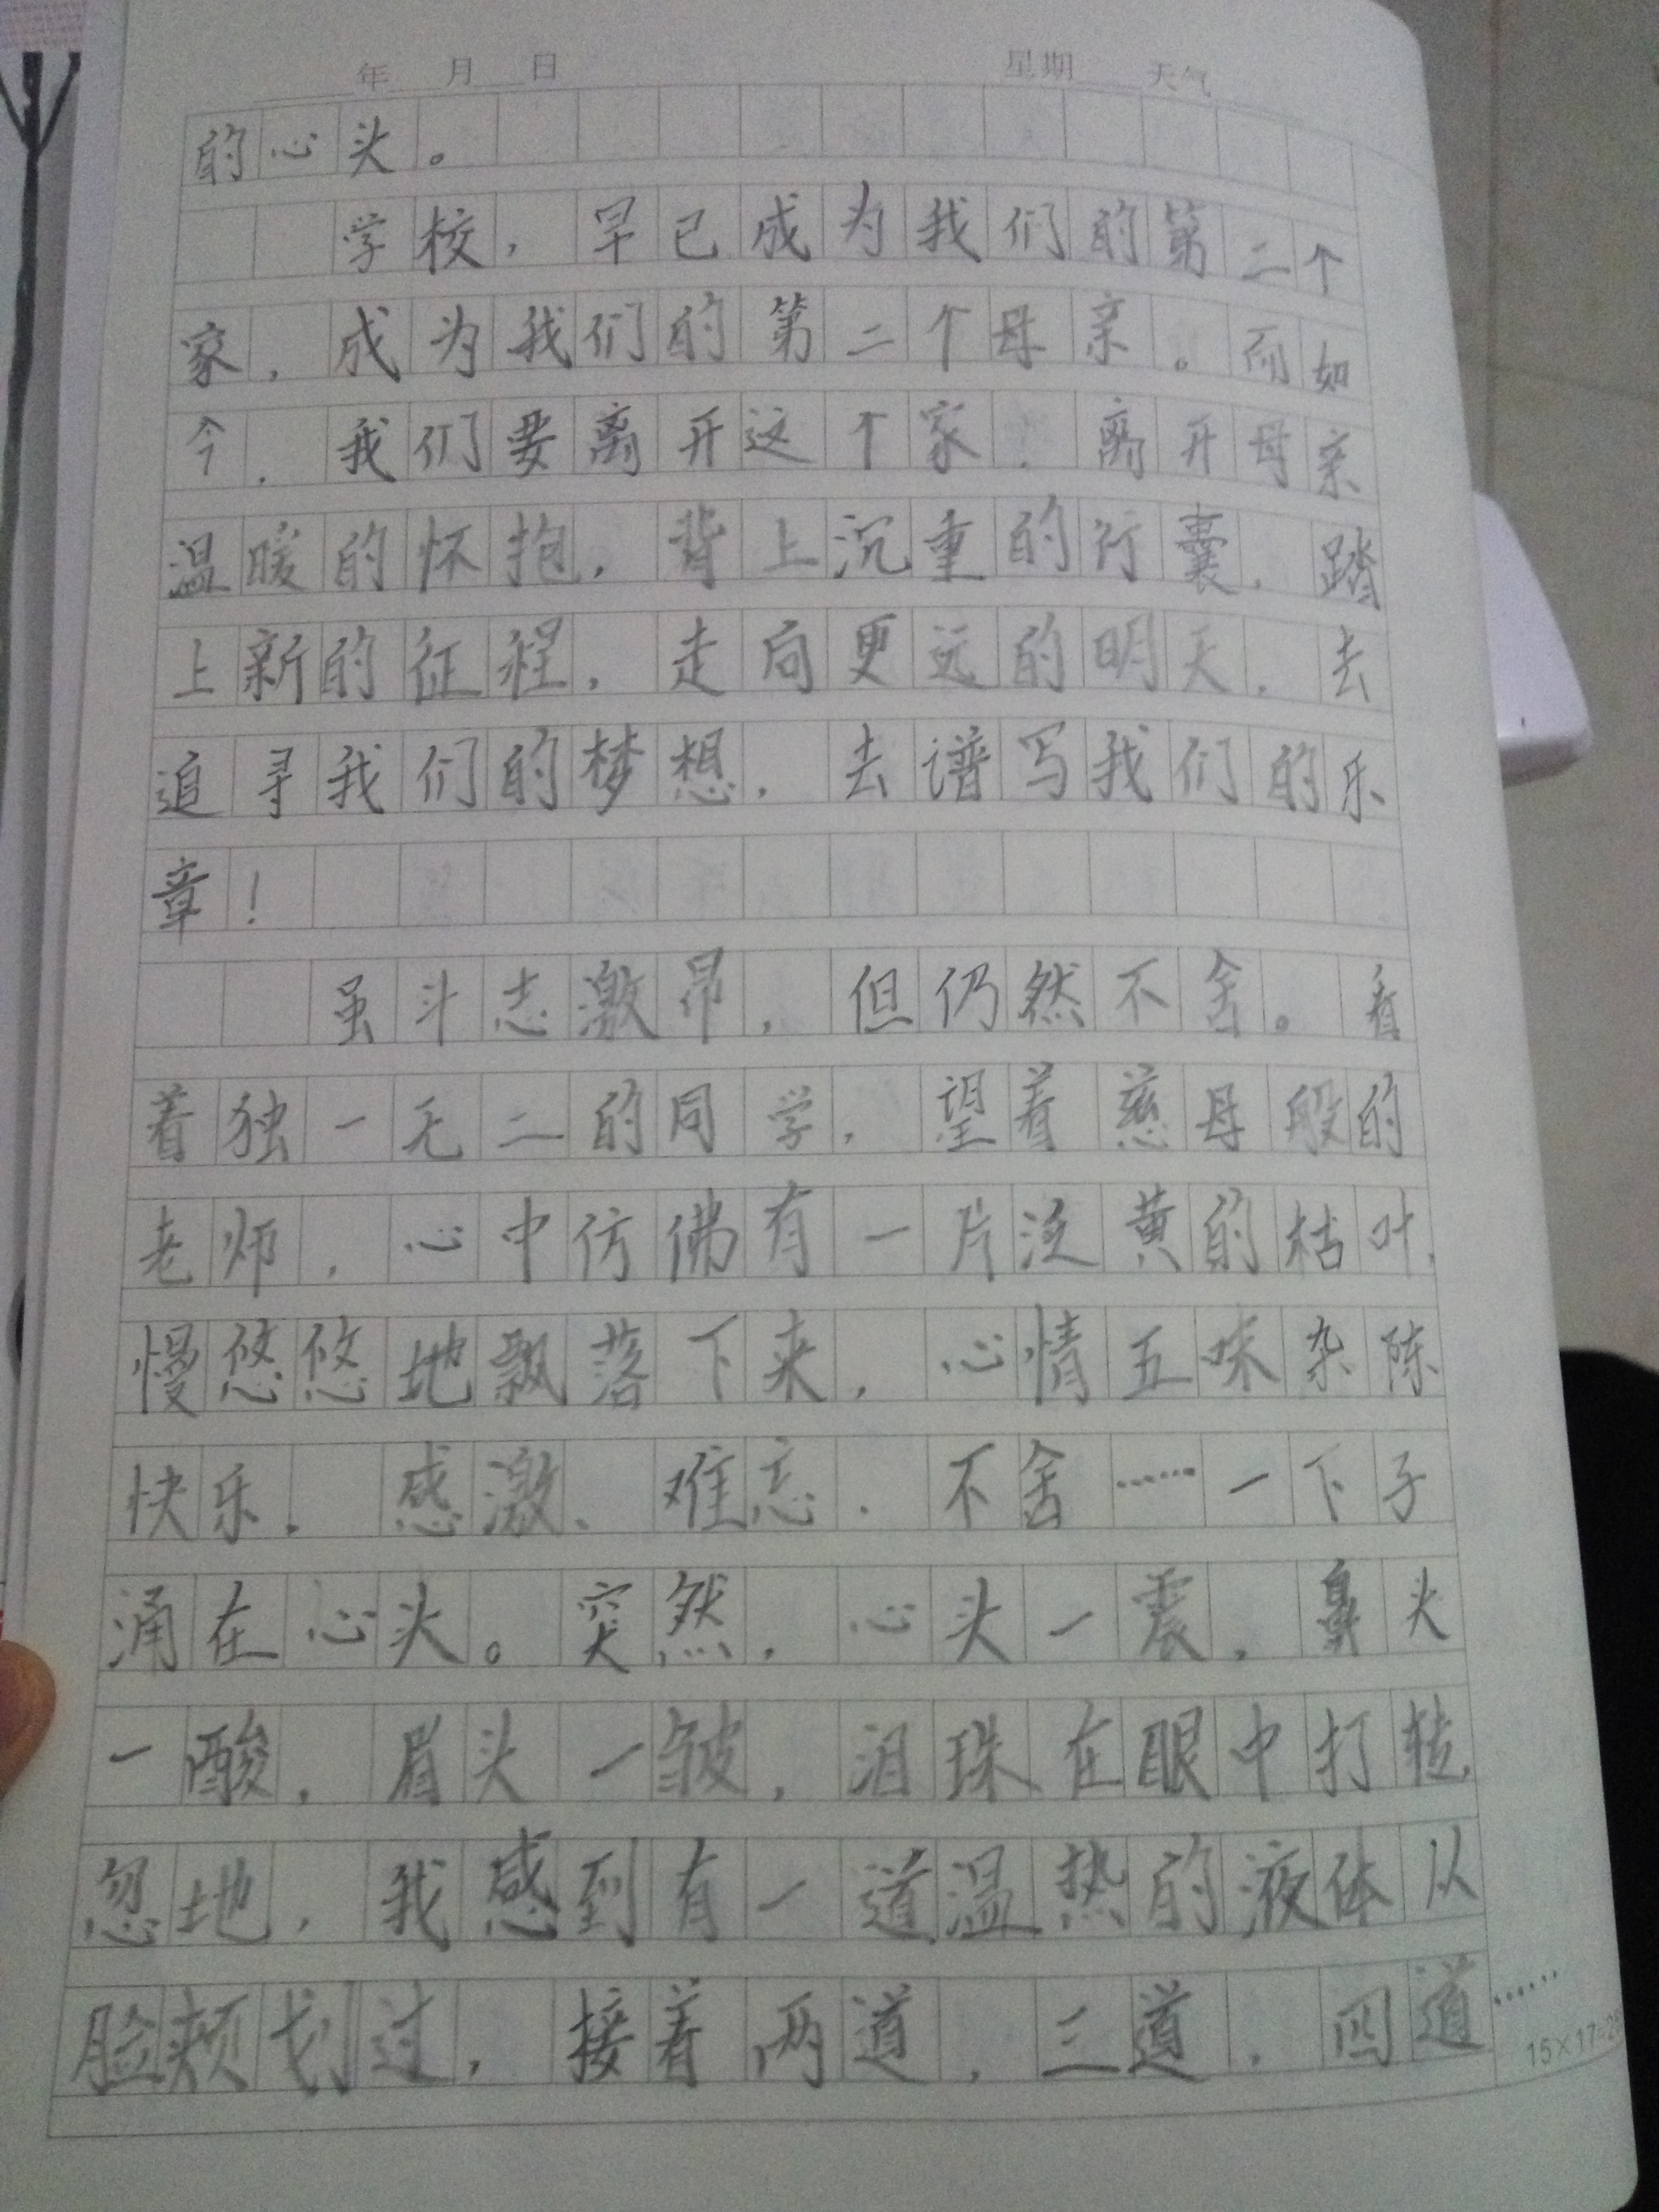 年 月 日 星期 天气
的心头。
学校，早已成为我们的第二个
家，成为我们的第二个母亲。而如
今，我们要离开这个家，离开母亲
温暖的怀抱，背上沉重的行囊，踏
上新的征程，走向更远的明天，去
追寻我们的梦想，去谱写我们的乐
章！
虽斗志激昂，但仍然不舍。看
着独一无二的同学，望着慈母般的
老师，心中仿佛有一片泛黄的枯叶，
慢悠悠地飘落下来，心情五味杂陈
快乐、感激、难忘、不舍……一下子
涌在心头。突然，心头一震，鼻头
一酸，眉头一皱，泪珠在眼中打转，
忽地，我感到有一道温热的液体从
脸颊划过，接着两道，三道，四道……